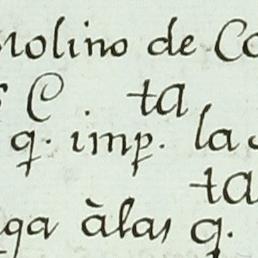 Molino de Co
C. ta
q. imp. la
ta
ga àlas q.